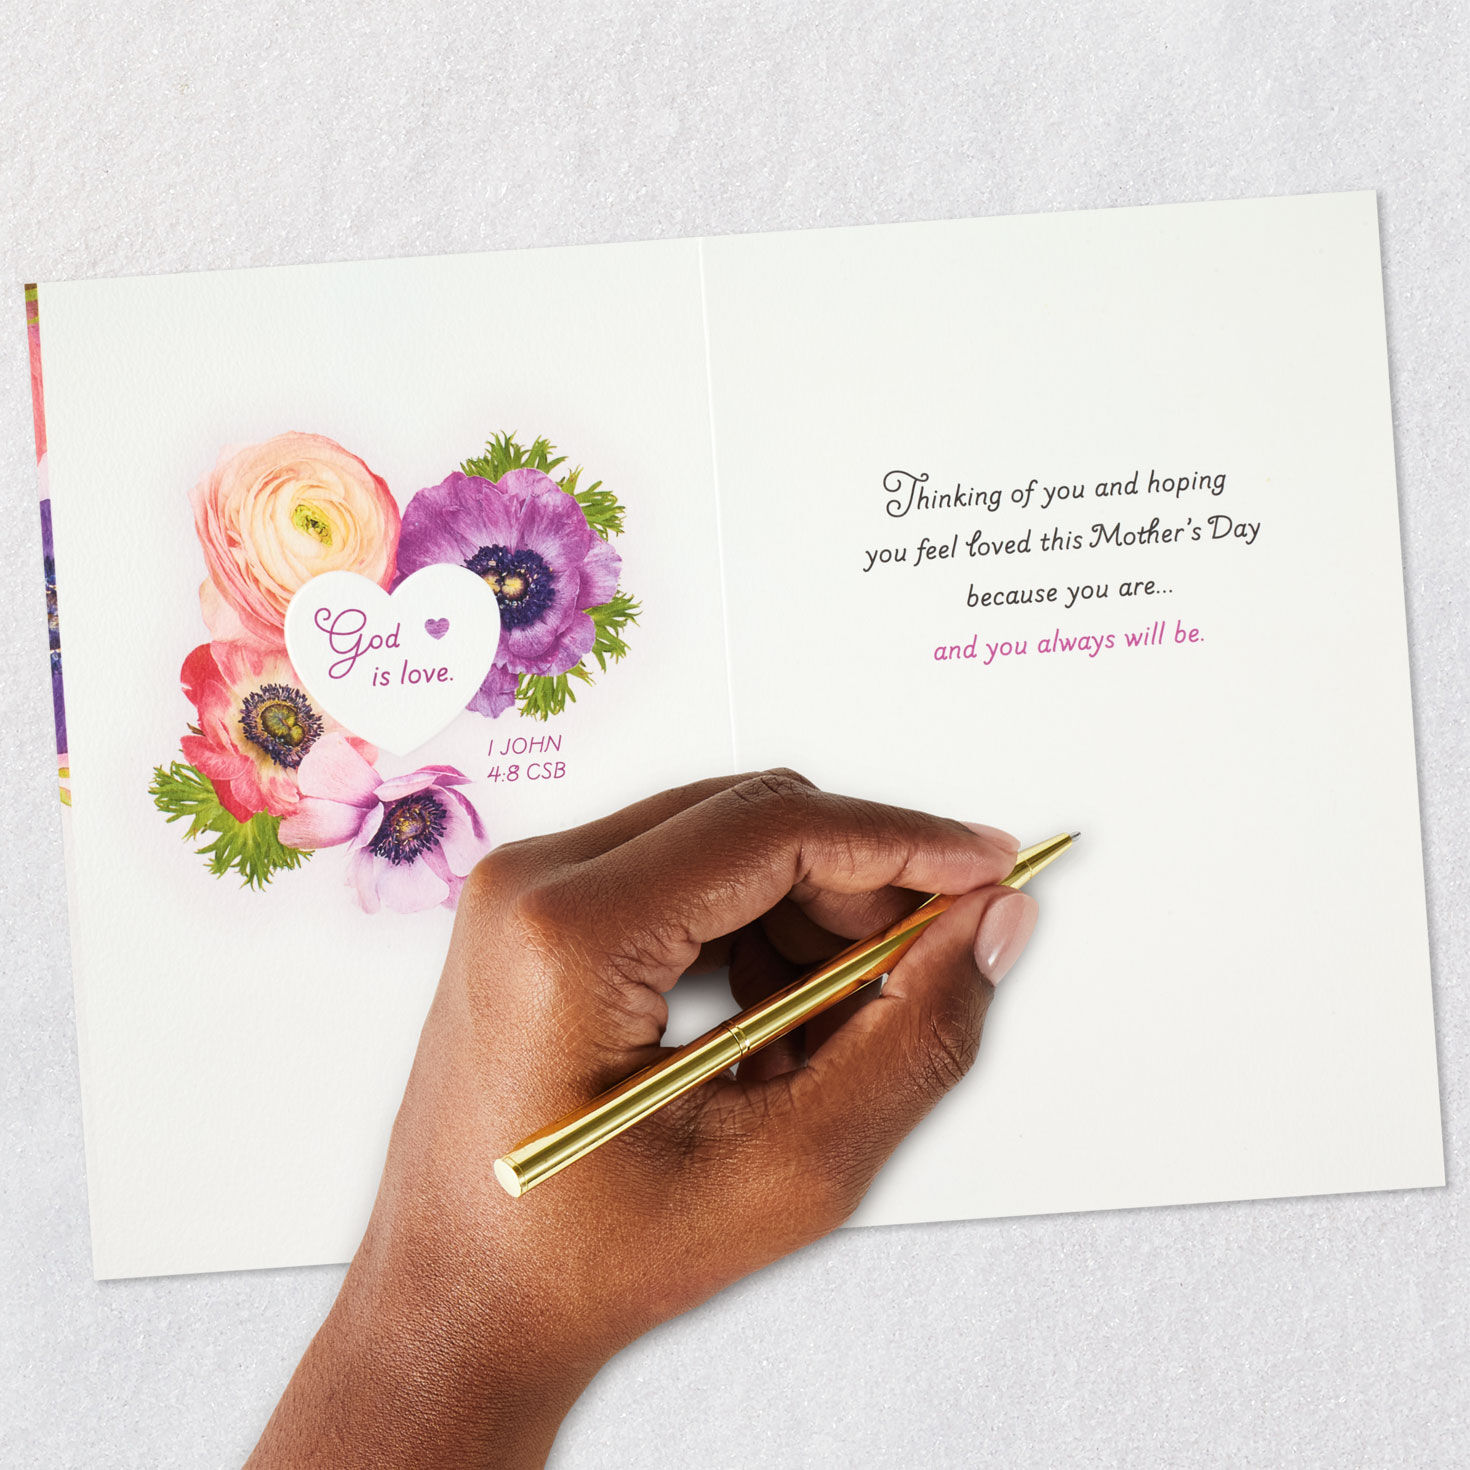 God
is love.
1 JOHN
4:8 CSB
Thinking of you and hoping
you feel loved this Mother's Day
because you are...
and you always will be.